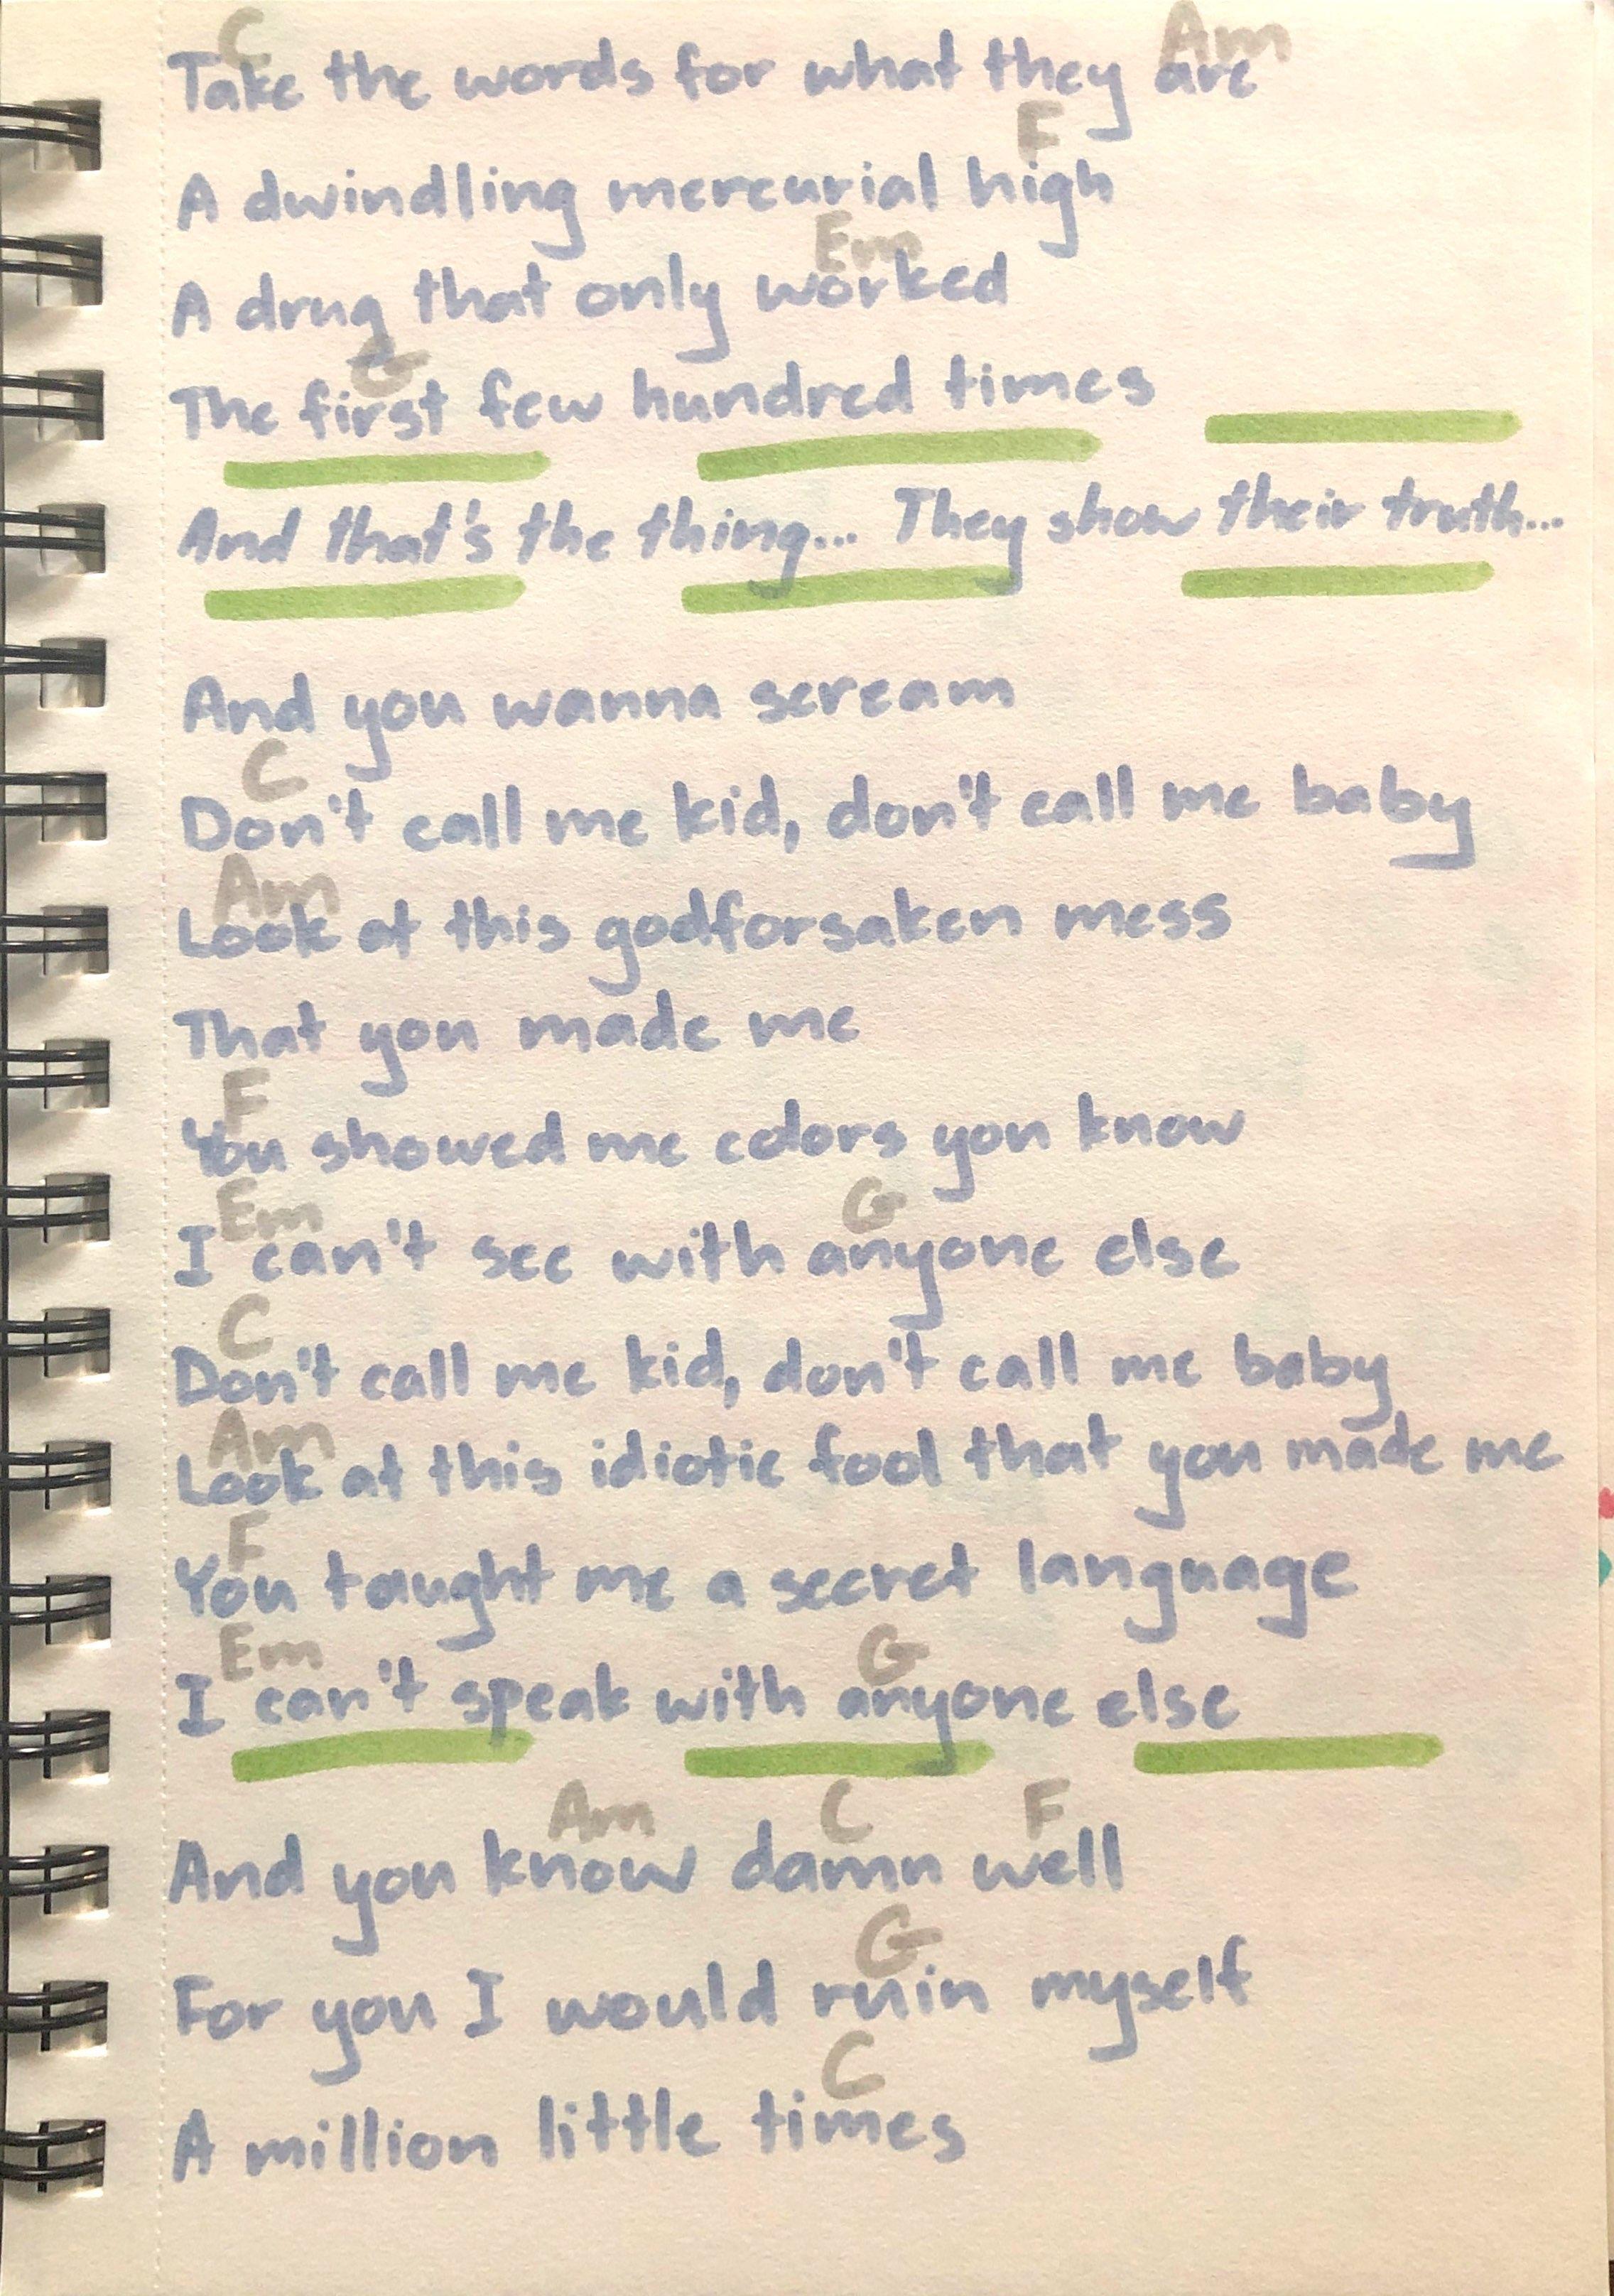 C Am
Take the words for what they are
F
A dwindling mercurial high
Em
A drug that only worked
G
The first few hundred times
And that's the thing... They show their truth...
And you wanna scream
C
Don't call me kid, don't call me baby
Am
Look at this godforsaken mess
That you made me
F
You showed me colors you know
Em G
I can't see with anyone else
C
Don't call me kid, don't call me baby
Am
Look at this idiotic fool that you made me
F
You taught me a secret language
Em G
I can't speak with anyone else
Am C F
And you know damn well
G
For you I would ruin myself
C
A million little times